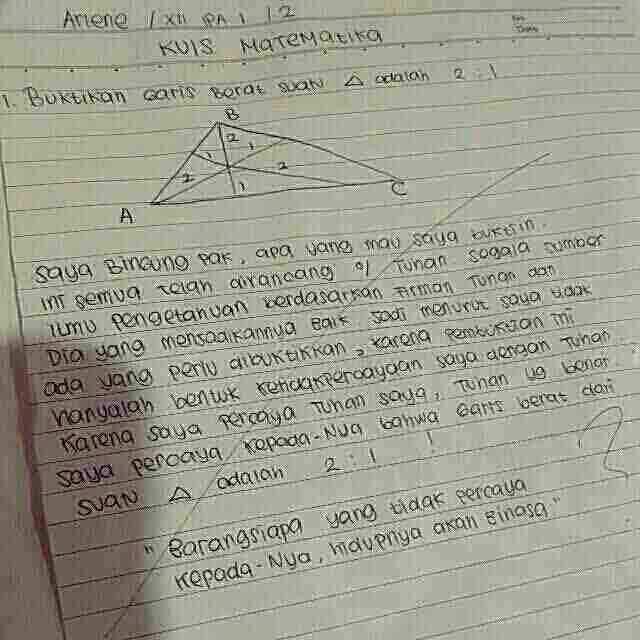 Arlene / XII IPA 1 / 2
KUIS MATEMATIKA
No
Date
1. Buktikan Garis Berat suatu △ adalah 2 : 1
B
2
1
1
2
2
1
A
C
saya Bingung pak, apa yang mau saya buktiin.
ini semua telah dirancang o/ Tuhan segala sumber
ilmu pengetahuan berdasarkan Firman Tuhan dan
Dia yang menjadikannya Baik. Jadi menurut saya tidak
ada yang perlu dibuktikan, karena pembuktian ini
hanyalah bentuk ketidakpercayaan saya dengan Tuhan
Karena saya percaya Tuhan saya, Tuhan yg benar
saya percaya kepada-Nya bahwa Garis berat dari
suatu △ adalah 2 : 1 !
"Barangsiapa yang tidak percaya
kepada-Nya, hidupnya akan Binasa"